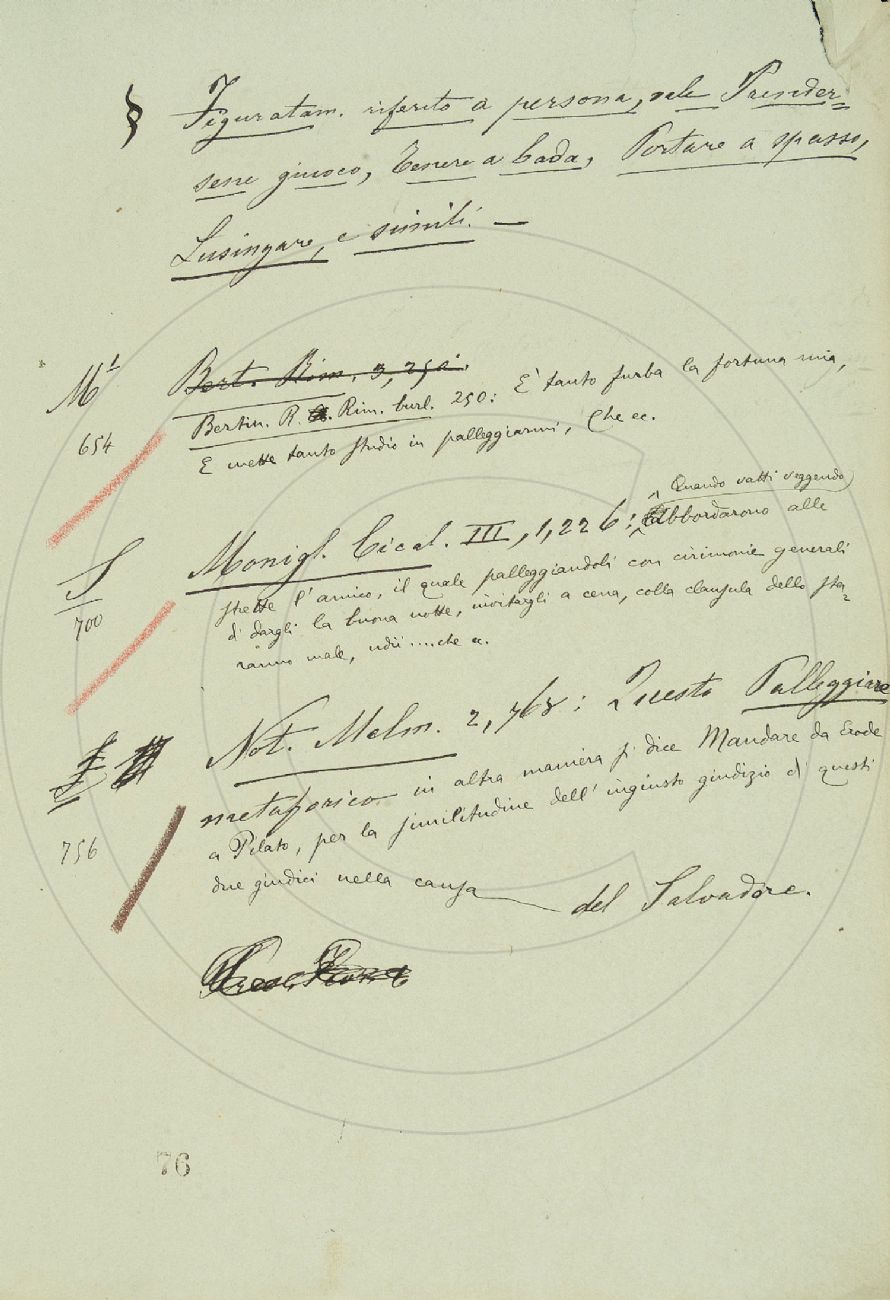 § Figuratam. riferito a persona, vale Prender=
sene giuoco, Tenere a bada, Portare a spasso,
Lusingare, e simili. —
Mⁱ Bert. Rim. 3, 250.
Bertin. R. Rim. burl. 250: E' tanto furba la fortuna mia,
654 E mette tanto studio in palleggiarmi, Che ec.
Quando vatti veggendo
S Monigl. Cical. III, 1, 226: Abbordarono alle
strette l'amico, il quale palleggiandoli con cirimonie generali
700 di dargli la buona notte, invitargli a cena, colla clausula dello sta=
ranno male, udii .... che ec.
Not. Malm. 2, 768: Questo Palleggiare
metaforico in altra maniera si dice Mandare da Erode
756 a Pilato, per la similitudine dell'ingiusto giudizio di questi
due giudici nella causa del Salvadore.
76